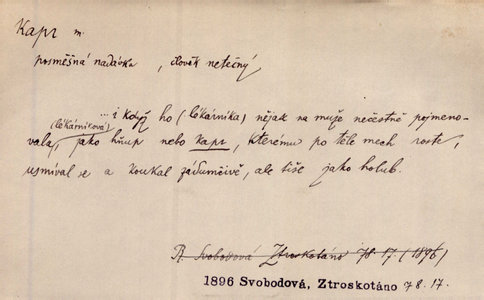 Kapr m.
posměšná nadávka, člověk netečný
... i když ho (lékárníka) nějak na muže nečestně pojmeno-
(lékárníková)
vala, jako hňup nebo kapr, kterému po těle mech roste,
usmíval se a koukal zádumčivě, ale tiše jako holub.
R. Svobodová Ztroskotáno 78.17. (1896)
1896 Svobodová, Ztroskotáno 78.17.